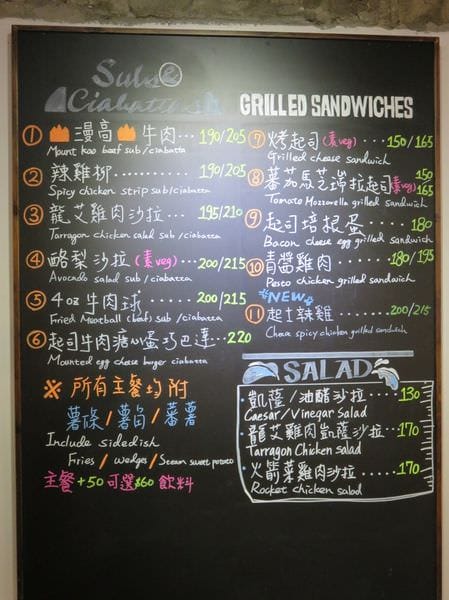 Subs &
Ciabattas
① 漫高 牛肉 ... 190/205
Mount kao beef sub/ciabatta
② 辣雞柳 ......... 190/205
Spicy chicken strip sub/ciabatta
③ 龍艾雞肉沙拉 ... 195/210
Tarragon chicken salad sub / ciabatta
④ 酪梨沙拉 (素veg) ... 200/215
Avocado salad sub / ciabatta
⑤ 4oz 牛肉球 ...... 200/215
Fried Meatball (beef) sub/ciabatta
⑥ 起司牛肉溏心蛋巧巴達... 220
Mounted egg cheese burger ciabatta
※ 所有主餐均附
薯條/薯角/蕃薯
Include sidedish
Fries / wedges / Steam sweet potato
主餐+50可選$60飲料
GRILLED SANDWICHES
⑦ 烤起司 (素veg) ... 150/165
Grilled cheese sandwich
⑧ 蕃茄馬芝瑞拉起司(素veg) 150/165
Tomato Mozzarella grilled sandwich
⑨ 起司培根蛋 ...... 180
Bacon cheese egg grilled sandwich
⑩ 青醬雞肉 ...... 180/195
Pesto chicken grilled sandwich
*NEW*
⑪ 起士辣雞 ...... 200/215
Cheese spicy chicken grilled sandwich
SALAD
凱薩/油醋沙拉 ..... 130
Caesar/Vineqar Salad
龍艾雞肉凱薩沙拉 .... 170
Tarragon Chicken salad
火箭菜雞肉沙拉 ...... 170
Rocket chicken salad